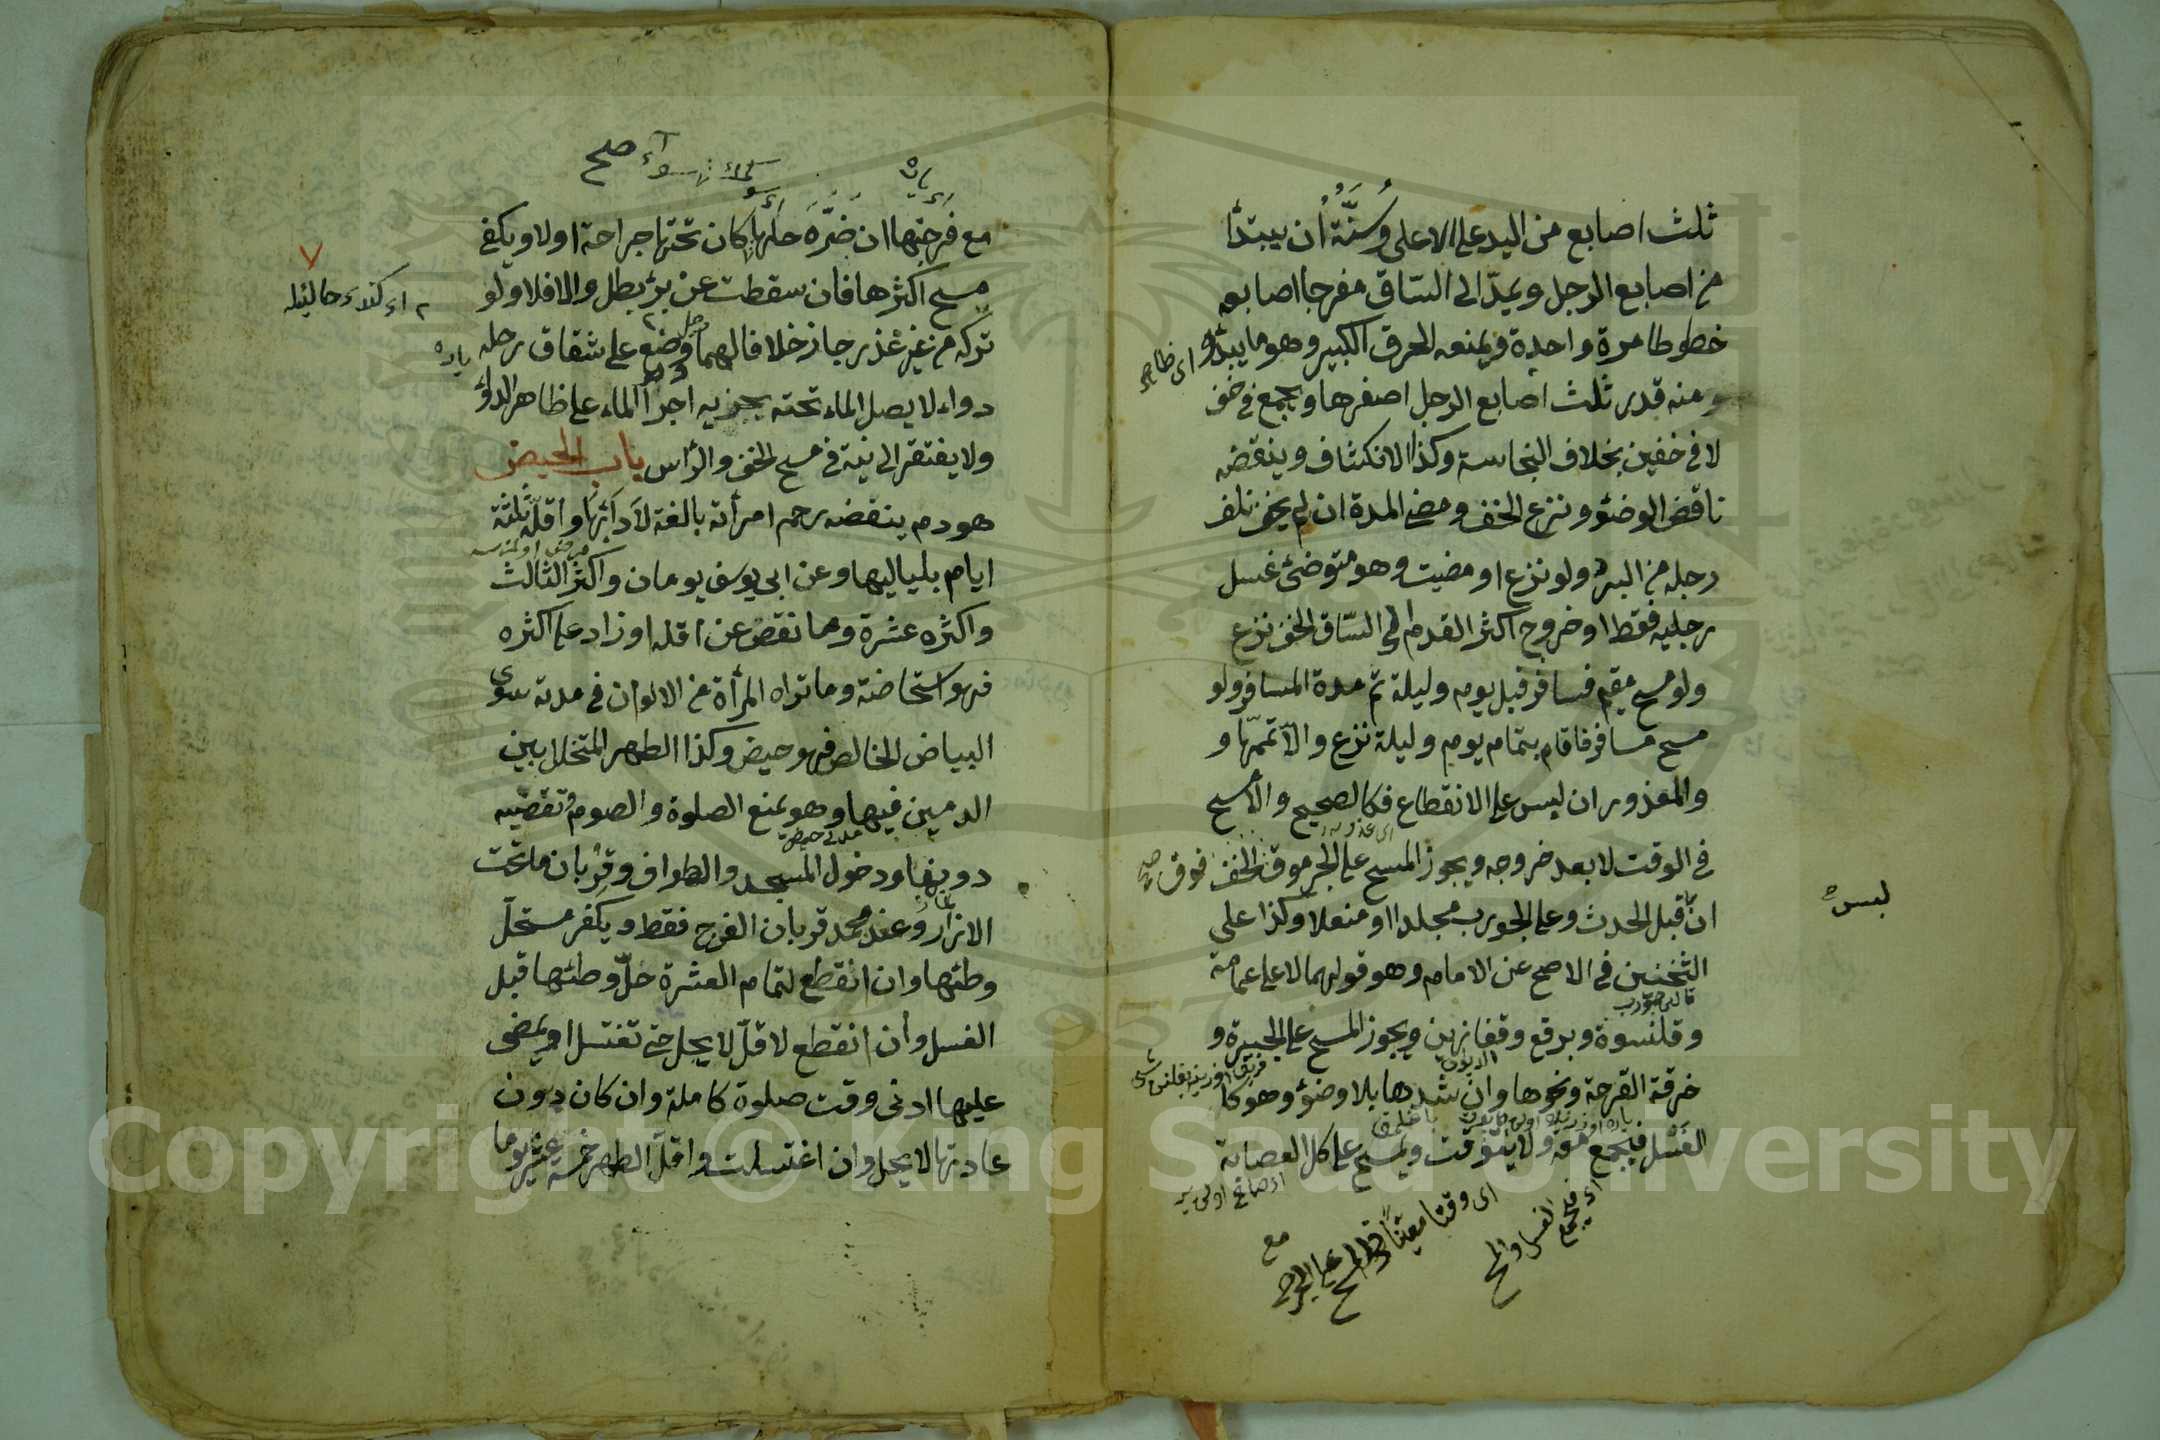 ثلث اصابع من اليد على الاعلى وسنته ان يبتدأ
من اصابع الرجل ويمدّ الى السّاق مفرجا اصابعه
خطوطا مرة واحدة ويمنعه الخرق الكبير وهو ما يبدو
منه قدر ثلث اصابع الرجل اصغرها ويجمع في خف
لا في خفين بخلاف النجاسة وكذا الانكشاف وينقضه
ناقض الوضؤ ونزع الخف ومضى المدة ان لم يخف تلف
رجله من البرد ولو نزع او مضت وهو متوضئ غسل
رجليه فقط وخروج اكثر القدم الى السّاق الخف نزع
ولو مسح مقيم فسافر قبل يوم وليلة تم مدة المسافر ولو
مسح مسافر فاقام بتمام يوم وليلة نزع والّا تمّمها و
والمعذور ان لبس على الانقطاع فكالصحيح والا مسح
اى عذره
في الوقت لا بعد خروجه ويجوز المسح على الجرموق فوق الخف
ان قبل الحدث وعلى الجورب مجلدا او منعلا وكذا على
لبسه
الثخنين في الاصح عن الامام وهو قولهما لا على عمامة
وقلنسوة وبرقع وقفازين ويجوز المسح على الجبيرة و
خرقة القرحة ونحوها وان شدها بلا وضؤ وهو كا
الغسل فيجمع معه ولا يتوقت ويمسح على كل العصابة
اى وقتا معينا
اى فيجمع الغسل والمسح
مع
سواء صح
مع فرجتها ان ضرّه حلّها كان تحتها جراحة اولا ويكفى
مسح اكثرها فان سقطت عن برؤ بطل والا فلا ولو
تركه من غير عذر جاز خلافا لهما وضع على شقاق رجله
دواء لا يصل الماء تحته يجزيه اجراء الماء على ظاهر الدواء
ولا يفتقر الى نية في مسح الخف والرأس باب الحيض
هو دم ينفضه رحم امرأة بالغة لا داء بها واقلّه ثلثة
ايام بلياليها وعن ابى يوسف يومان واكثر الثالث
واكثره عشرة وما نقص عن اقله او زاد على اكثره
فهو استحاضة وما تراه المرأة من الالوان في مدته سوى
البياض الخالص فهو حيض وكذا الطهر المتخلل بين
الدمين فيها وهو يمنع الصلوة والصوم وتقضيه
دونها ودخول المسجد والطواف وقربان ما تحت
الازار وعند محمد قربان الفرج فقط ويكفر مستحلّ
وطئها وان انقطع لتمام العشرة حلّ وطئها قبل
الغسل وان انقطع لاقلّ لا يحل حتى تغتسل او يمضى
عليها ادنى وقت صلوة كاملة وان كان دون
عادتها لا يحل وان اغتسلت واقلّ الطهر خمسة عشر يوما
Copyright © King Saud University